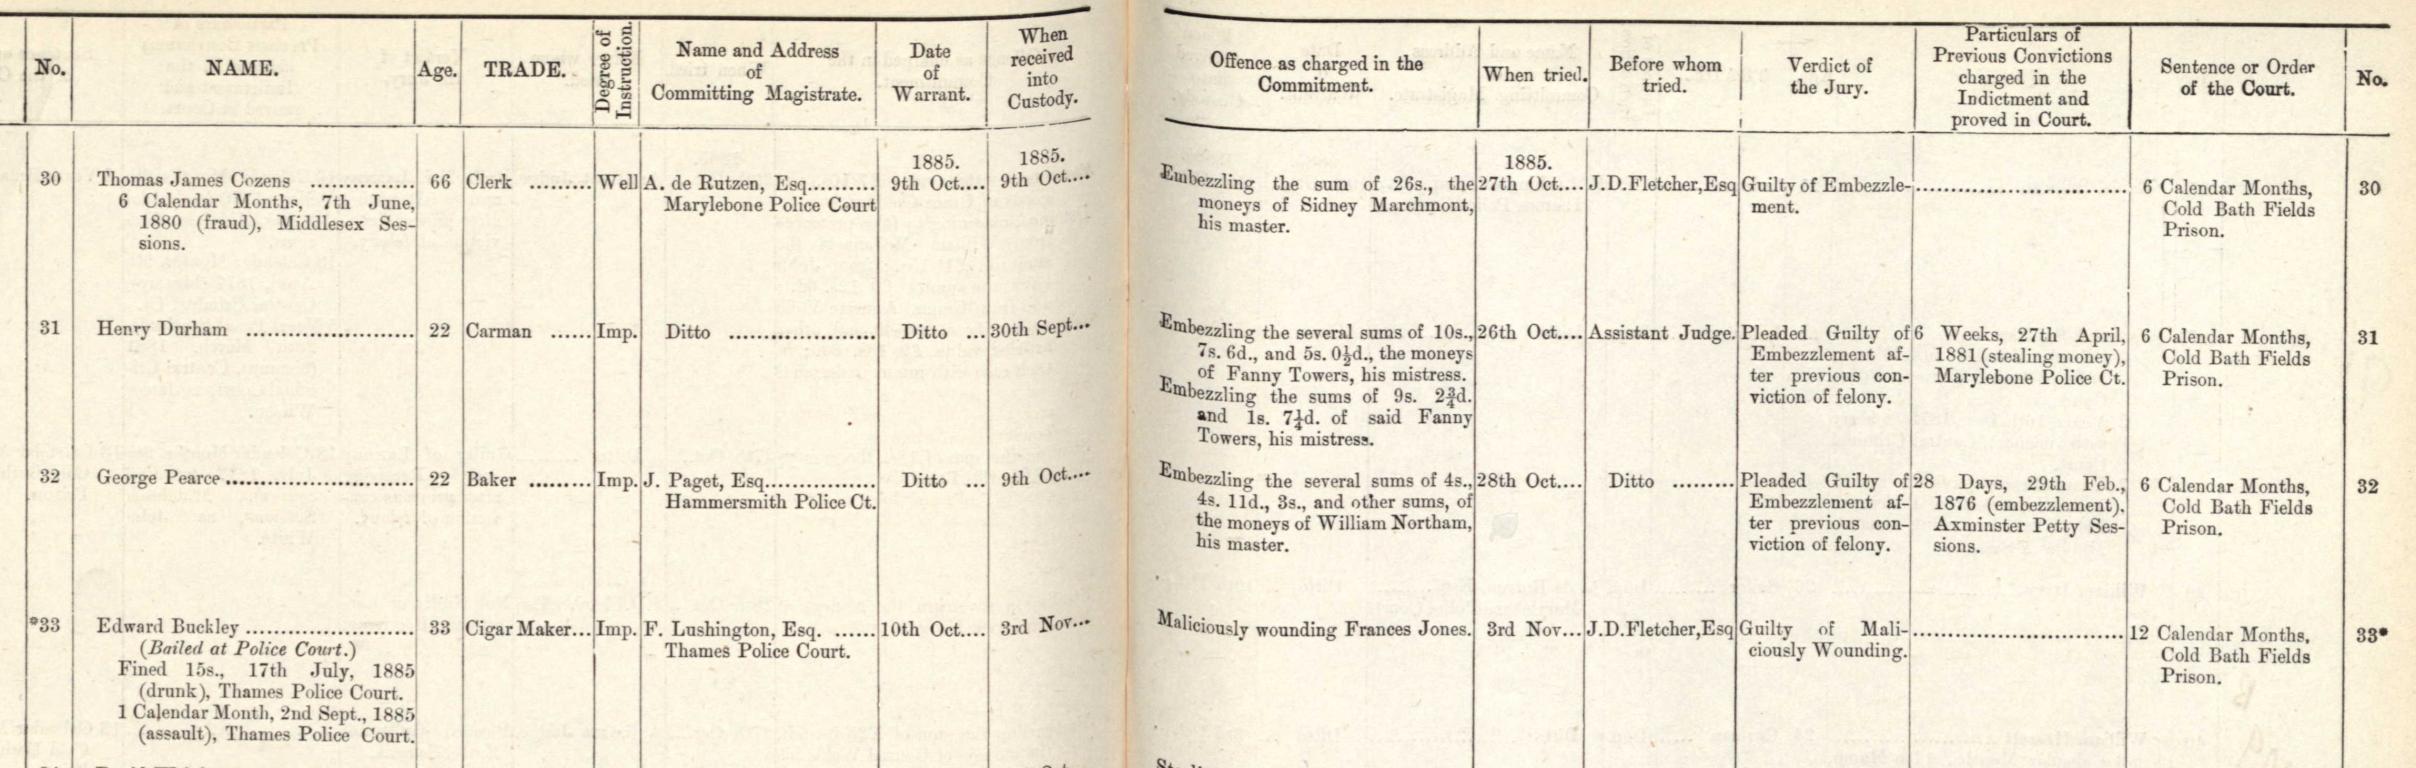 No.
NAME.
Age.
TRADE.
Degree of
Instruction.
Name and Address
of
Committing Magistrate.
Date
of
Warrant.
When
received
into
Custody.
Offence as charged in the
Commitment.
When tried.
Before whom
tried.
Verdict of
the Jury.
Particulars of
Previous Convictions
charged in the
Indictment and
proved in Court.
Sentence or Order
of the Court.
No.
30
Thomas James Cozens ...............
6 Calendar Months, 7th June,
1880 (fraud), Middlesex Ses-
sions.
66
Clerk .........
Well
A. de Rutzen, Esq..........
Marylebone Police Court
1885.
9th Oct....
1885.
9th Oct....
Embezzling the sum of 26s., the
moneys of Sidney Marchmont,
his master.
1885.
27th Oct....
J.D.Fletcher,Esq
Guilty of Embezzle-
ment.
..............................
6 Calendar Months,
Cold Bath Fields
Prison.
30
31
Henry Durham ........................
22
Carman ......
Imp.
Ditto .....................
Ditto ...
30th Sept...
Embezzling the several sums of 10s.,
7s. 6d., and 5s. 0½d., the moneys
of Fanny Towers, his mistress.
Embezzling the sums of 9s. 2¾d.
and 1s. 7¼d. of said Fanny
Towers, his mistress.
26th Oct....
Assistant Judge.
Pleaded Guilty of
Embezzlement af-
ter previous con-
viction of felony.
6 Weeks, 27th April,
1881 (stealing money),
Marylebone Police Ct.
6 Calendar Months,
Cold Bath Fields
Prison.
31
32
George Pearce ...........................
22
Baker .........
Imp.
J. Paget, Esq................
Hammersmith Police Ct.
Ditto ...
9th Oct....
Embezzling the several sums of 4s.,
4s. 11d., 3s., and other sums, of
the moneys of William Northam,
his master.
28th Oct....
Ditto .........
Pleaded Guilty of
Embezzlement af-
ter previous con-
viction of felony.
28 Days, 29th Feb.,
1876 (embezzlement).
Axminster Petty Ses-
sions.
6 Calendar Months,
Cold Bath Fields
Prison.
32
*33
Edward Buckley ........................
(Bailed at Police Court.)
Fined 15s., 17th July, 1885
(drunk), Thames Police Court.
1 Calendar Month, 2nd Sept., 1885
(assault), Thames Police Court.
33
Cigar Maker...
Imp.
F. Lushington, Esq. ......
Thames Police Court.
10th Oct....
3rd Nov...
Maliciously wounding Frances Jones.
3rd Nov...
J.D.Fletcher,Esq
Guilty of Mali-
ciously Wounding.
..............................
12 Calendar Months,
Cold Bath Fields
Prison.
33*